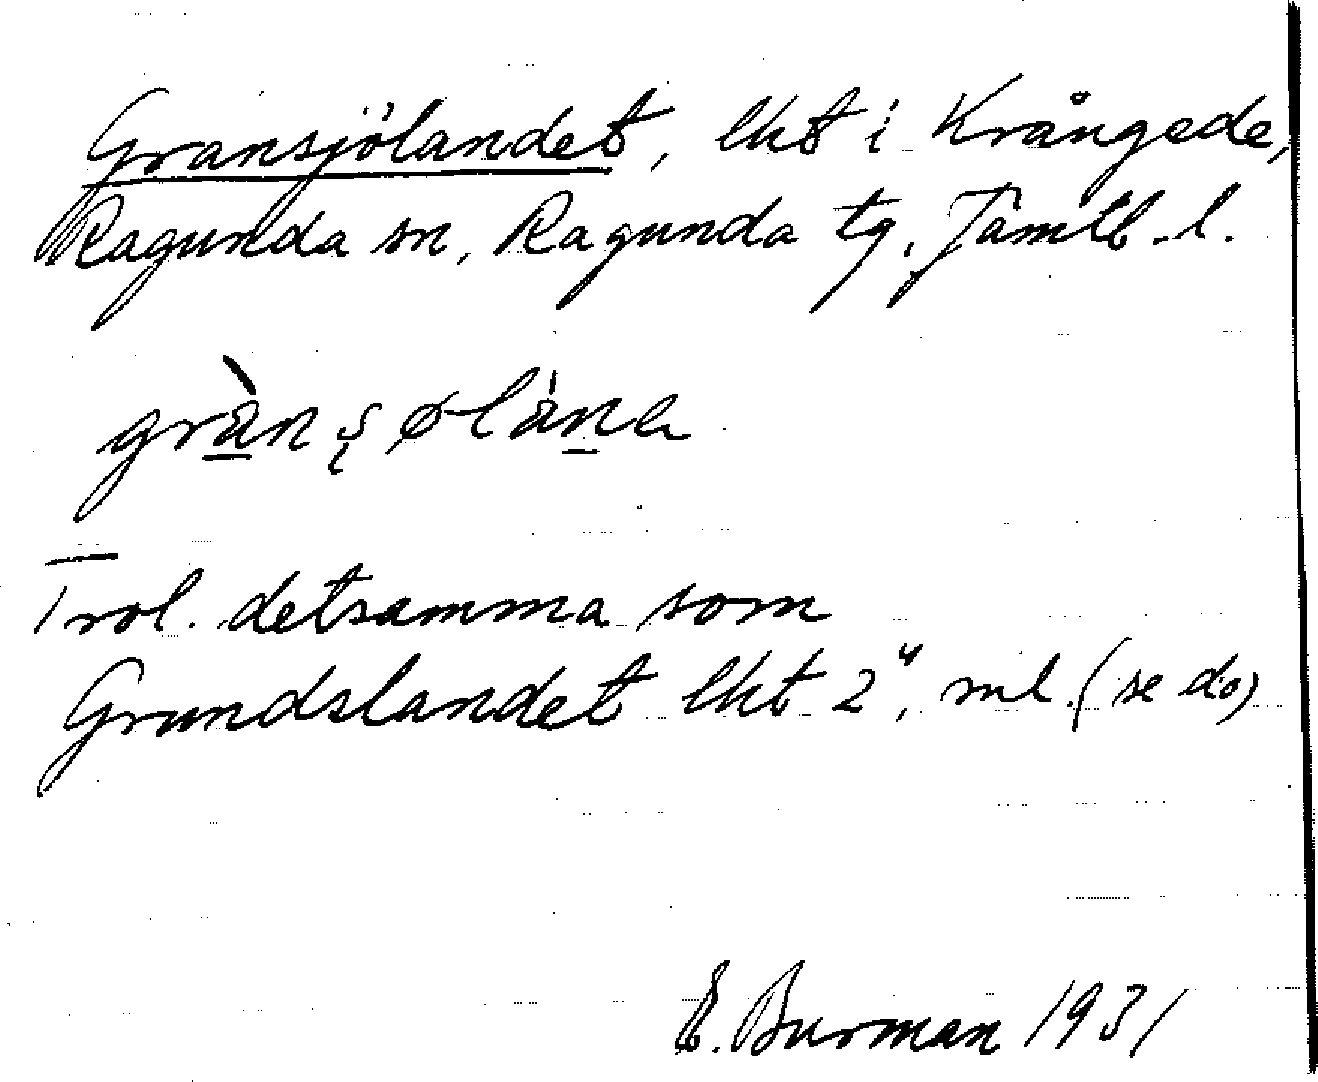 Gransjölandet, lkt i Krångede,
Ragunda sn, Ragunda tg. Jämtl. l.
Trol. detsamma som
Grundslandet lkt 2", ml. (se do)
E. Burman 1931